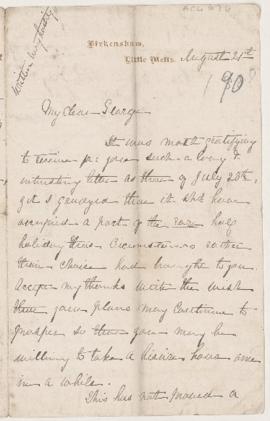 ACG 676
Written very hastily
Birkenshaw,
Little Metis.
August 21st
1908
My dear George
It was most gratifying
to receive fr: you such a long &
interesting letter as that of July 28th,
yet I grudged that it shd have
occupied a part of the rare half
holiday time. Circumstances rather
than choice had brought to you.
Accept my thanks with the wish
that your plans may continue to
prosper so that you may be
willing to take a leisure hour once
in a while.
This has not proved a